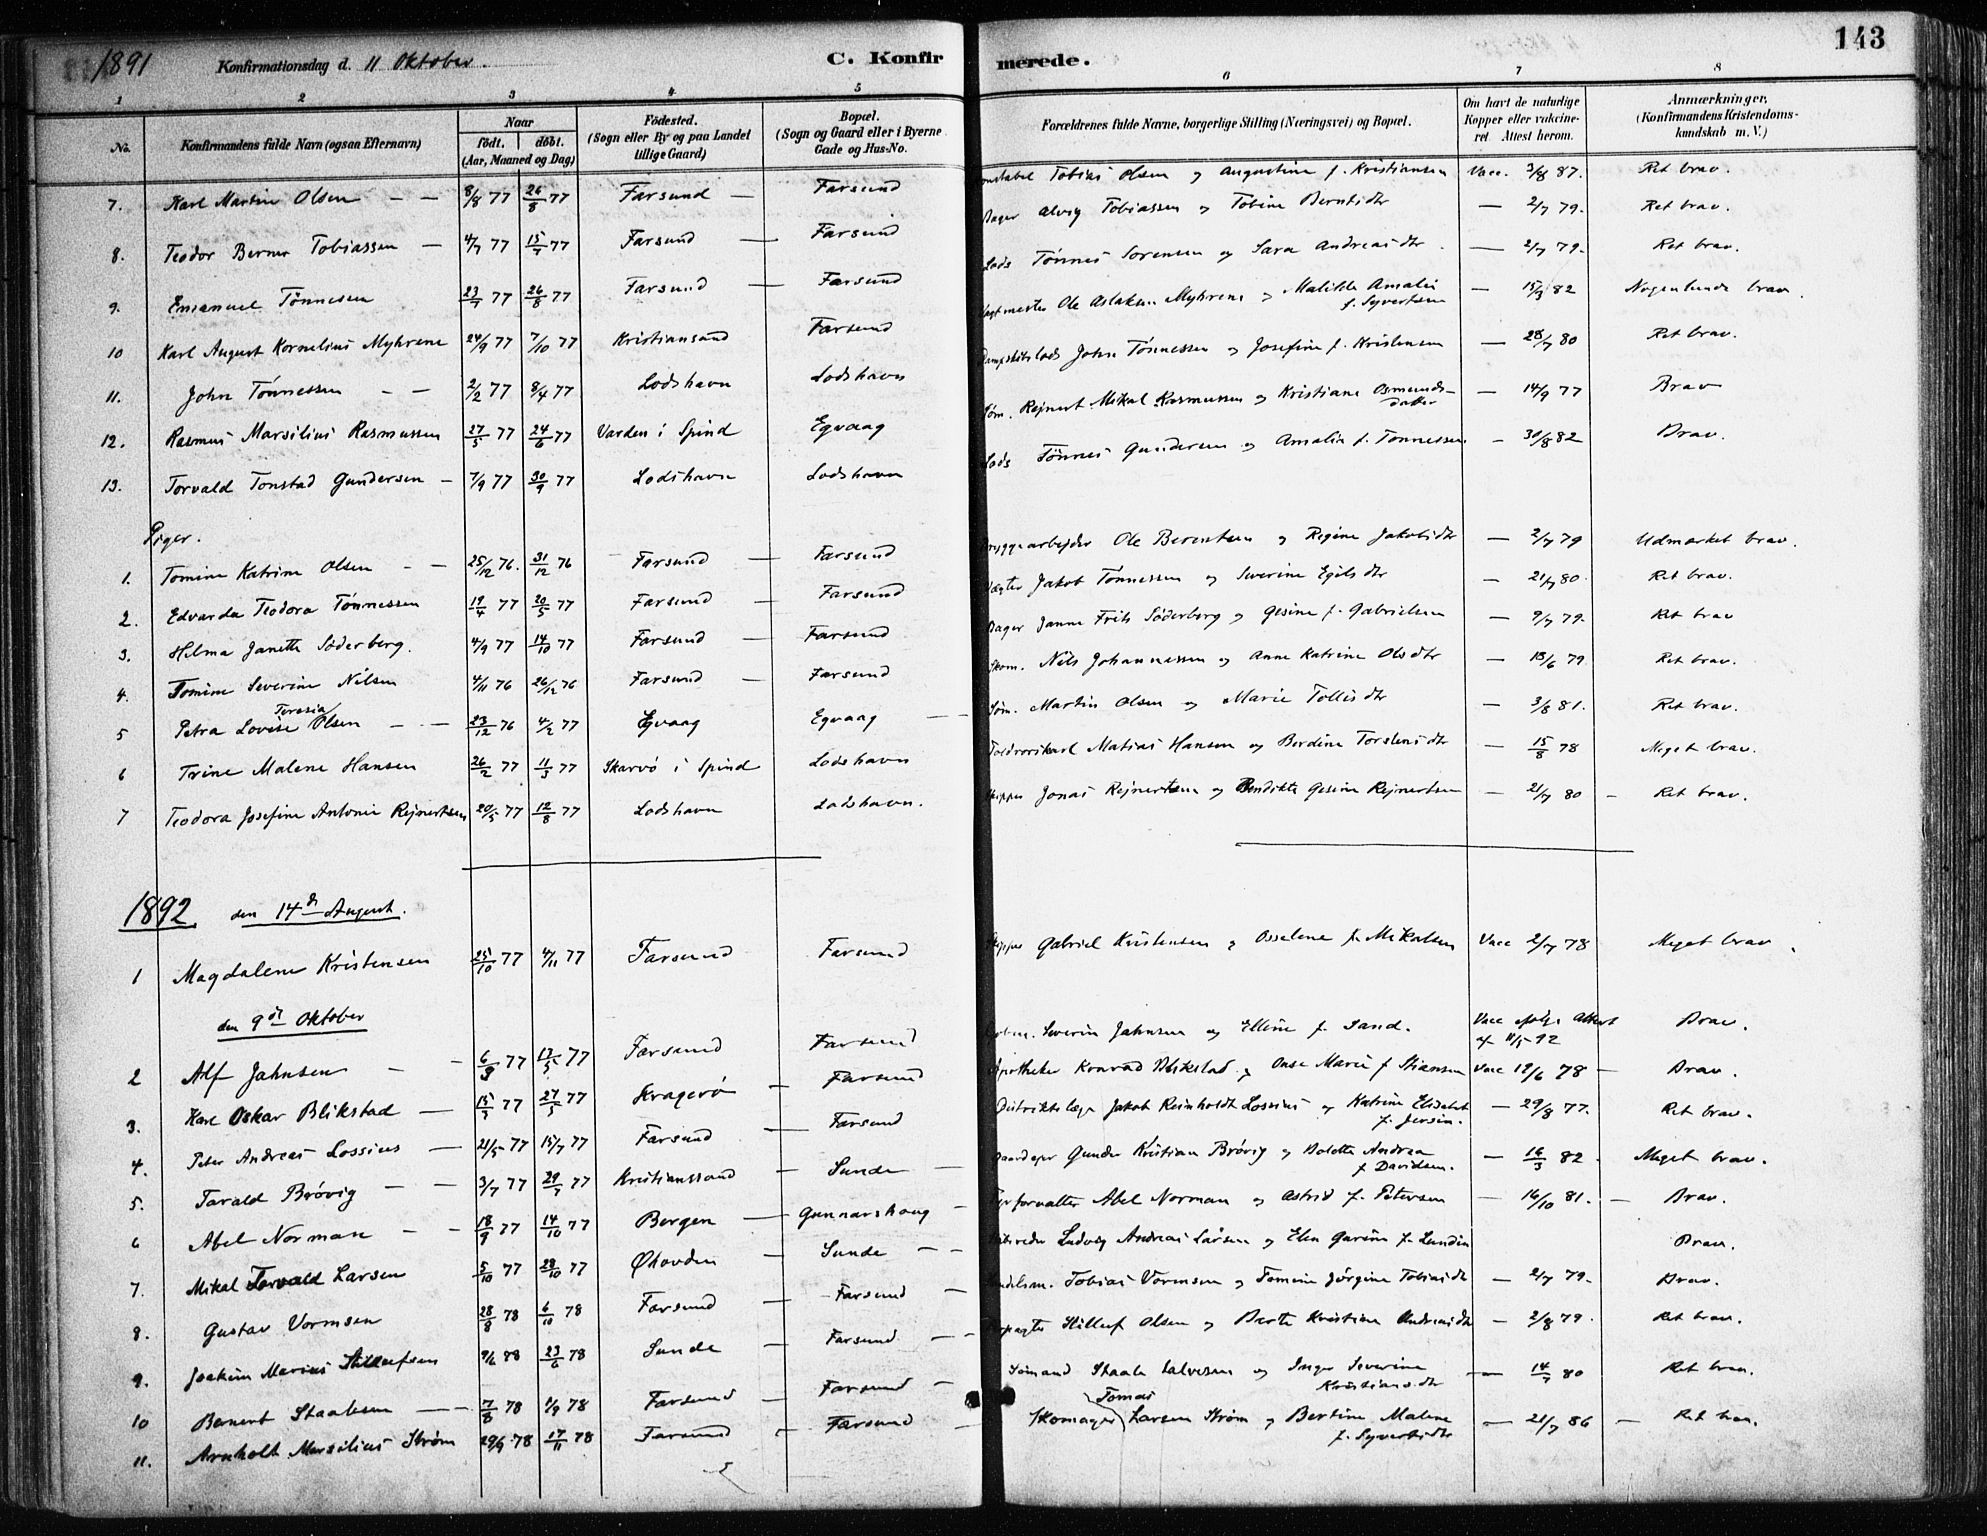 1891 Konfirmationsdag d. 11 Oktober. C. Konfirmerede. 143
1 2 3 4 5 6 7 8
No. Konfirmandens fulde Navn (ogsaa Efternavn) Naar født, døbt. (Aar, Maaned og Dag) Födested. (Sogn eller By og paa Landet tillige Gaard) Bopæl. (Sogn og Gaard eller i Byerne Gade og Hus-No. Forældrenes fulde Navne, borgerlige Stilling (Næringsvei) og Bopæl. Om havt de naturlige Kopper eller vakcineret. Attest herom. Anmærkninger. (Konfirmandens Kristendomskundskab m. V.)
7. Karl Martin Olsen — — 8/8 77 26/8 77 Farsund — Farsund Tobias Olsen og Augustine f. Kristiansen Vacc. 3/8 87. Ret brav.
8. Teodor Berner Tobiassen — 4/7 77 15/7 77 Farsund — Farsund Alvig Tobiassen og Tobine Berntsdtr — 2/7 79. Ret brav.
9. Emanuel Tönnesen 23/7 77 26/8 77 Farsund — Farsund Lods Tönnes Sorensen og Sara Andreasdtr. — 2/7 79. Ret brav.
10 Karl August Kornelius Myhrene 24/9 77 7/10 77 Kristiansand Farsund Ole Aslaksen Myhrene og Matilde Amalia f. Syvertsen — 15/9 82 Nogenlunde brav.
11. John Tönnessen — — 2/2 77 8/4 77 Lodshavn Lodshavn Dampskibslods John Tönnessen og Josefine f. Kristensen — 28/7 80 Ret brav.
12. Rasmus Marsilius Rasmussen 27/5 77 24/6 77 Varden i Spind Egvaag Söm. Rejnert Mikal Rasmussen og Kristiane Osmundsdatter — 14/9 77 Brav
13. Torvald Tonstad Gundersen — 7/9 77 30/9 77 Lodshavn Lodshavn Lods Tönnes Gundersen og Amalia f. Tonnessen — 30/8 82 Brav.
Piger.
1. Tomine Katrine Olsen — — 25/12 76. 31/12 76 Farsund — Farsund Bryggearbejder Ole Berentsen og Regine Jakobsdtr — 2/7 79 Udmærket brav.
2. Edvarda Teodora Tönnessen 19/4 77 20/5 77 Farsund — Farsund Vægter Jakob Tönnessen og Severine Egilsdtr — 21/7 80. Ret brav.
3. Helma Janette Söderberg. 4/9 77 14/10 77 Farsund — Farsund Bager Janne Frits Söderberg og Gesine f. Gabrielsen — 9/7 79. Ret brav
4. Tomine Severine Nilsen 4/11 76 26/12 76 Farsund — Farsund Skom. Nils Johannessen og Anne Katrine Olsdtr — 18/6 79. Ret brav.
5 Petra Lovise Teresia Olsen — — 23/12 76 4/2 77 Egvaag Egvaag — Söm. Martin Olsen og Marie Tollisdtr — 3/8 81. Ret brav.
6 Trine Malene Hansen 26/2 77 11/3 77 Skarvö i Spind Lodshavn Toldrorskarl Matias Hansen og Berdine Torstensdtr — 15/8 78 Meget brav.
7 Teodora Josefine Antonie Rejnertsen 20/5 77 12/8 77 Lodshavn Lodshavn. Skipper Jonas Rejnertsen og Bendikte Gesine Rejnertsen — 21/7 80 — Ret brav.
1892 den 14de August.
1 Magdalene Kristensen 25/10 77 4/11 77 Farsund Farsund Skipper Gabriel Kristensen og Osselene f. Mikalsen Vacc 2/7 78 Meget brav.
den 9de Oktober
2 Alf Jahnsen — — 6/3 77 13/5 77 Farsund Farsund Severin Jahnsen og Elline f. Sand. Vacc ifølge Attest af 11/5 92 Brav.
3. Karl Oskar Blikstad — 15/3 77 27/5 77 Kragerö — Farsund Apotheker Konrad Blikstad og Anse Marie f Stiansen Vacc 19/6 78 — Brav.
4. Peter Andreas Lossius — 21/5 77 15/7 77 Farsund — Farsund Distriktslæge Jakob Reinholdt Lossius og Katrine Elisabet f. Jersin. — 29/8 77. Ret brav.
5. Tarald Brövig — — 3/7 77 29/7 77 Kristianssand — Sunde — Gaardejer Gunder Kristian Brövig og Bolette Andrea f Davidsen. — 16/3 82. Meget brav.
6 Abel Norman — — 18/9 77 14/10 77 Bergen — Gunnarshaug — Fyrforvalter Abel Norman og Astrid f. Petersen — 16/10 81. — Brav.
7. Mikal Torvald Larsen 5/10 77 28/10 77 Øhovden — Sunde — — Ludvig Andreas Larsen og Elen Gurine f. Lundin Brav.
8. Gustav Vormsen 28/8 78 6/10 78 Farsund — Farsund — Handelsm. Tobias Vormsen og Tomine Jörgine Tobiasdtr — 2/7 79. Brav.
9. Joakim Marius Hilleufsen 9/6 88 23/6 78 Sunde — Farsund — — Hilleuf Olsen og Berte Kristine Andreasdtr — 2/8 79. Ret brav.
10 Bernert Staalesen — — 7/8 78 1/9 78 Farsund — Farsund — Sömand Staale Salvesen og Inger Severine Kristiansdtr — 14/7 80 Ret brav.
11. Arnholt Marsilius Ström 29/9 78 17/11 78 Farsund — Farsund — Skomager Tomas Larsen Ström og Bertine Malene f. Syvertsdtr — 21/7 86 — Ret brav.